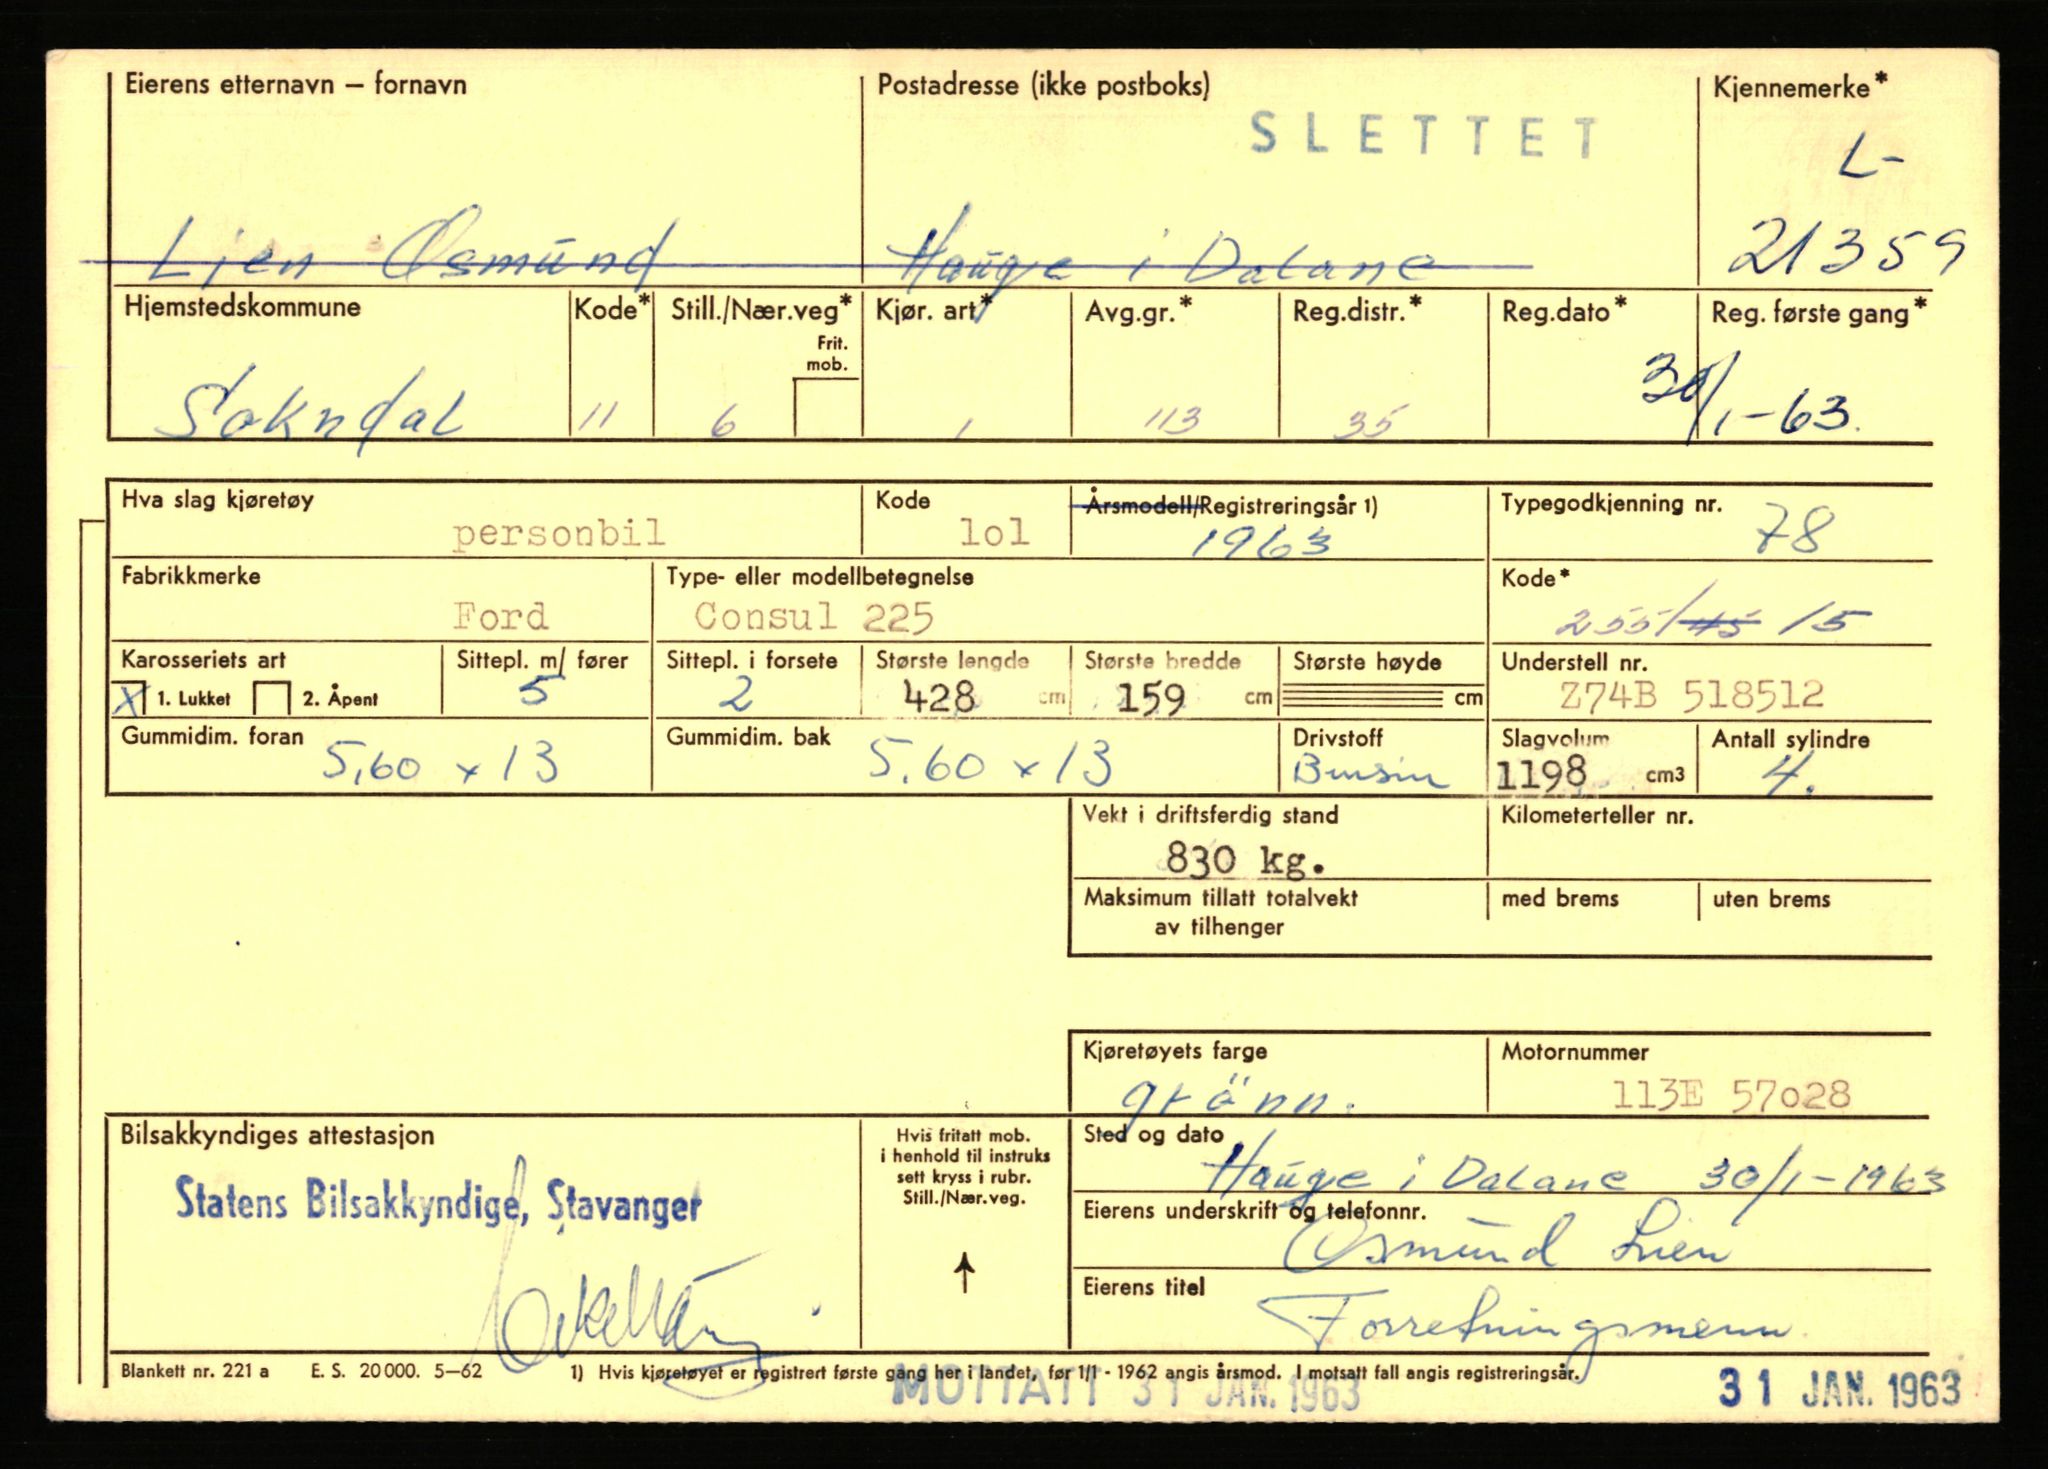 Eierens etternavn – fornavn
Postadresse (ikke postboks)
Kjennemerke*
SLETTET
L-
Lien Osmund
Hauge i Dalane
21359
Hjemstedskommune
Kode*
Still./Nær.veg*
Frit. mob.
Kjør. art*
Avg.gr.*
Reg.distr.*
Reg.dato*
Reg. første gang*
Sokndal
11
6
1
113
35
30/1-63.
Hva slag kjøretøy
Kode
Årsmodell/Registreringsår 1)
Typegodkjenning nr.
personbil
lol
1963
78
Fabrikkmerke
Type- eller modellbetegnelse
Kode*
Ford
Consul 225
255/45 15
Karosseriets art
Sittepl. m/ fører
Sittepl. i forsete
Største lengde
Største bredde
Største høyde
Understell nr.
X 1. Lukket
2. Åpent
5
2
428 cm
159 cm
cm
Z74B 518512
Gummidim. foran
Gummidim. bak
Drivstoff
Slagvolum
Antall sylindre
5,60 x 13
5.60 x 13
Bensin
1198 cm3
4.
Vekt i driftsferdig stand
Kilometerteller nr.
830 kg.
Maksimum tillatt totalvekt
av tilhenger
med brems
uten brems
Kjøretøyets farge
Motornummer
grönn.
113E 57028
Bilsakkyndiges attestasjon
Hvis fritatt mob.
i henhold til instruks
sett kryss i rubr.
Still./Nær.veg.
Sted og dato
Hauge i Dalane 30/1-1963
Statens Bilsakkyndige, Stavanger
Eierens underskrift og telefonnr.
Osmund Lien
Eierens titel
Forretningsmenn
Blankett nr. 221 a E. S. 20000. 5–62
1) Hvis kjøretøyet er registrert første gang her i landet, før 1/1 - 1962 angis årsmod. I motsatt fall angis registreringsår.
MOTTATT 31 JAN. 1963
31 JAN. 1963